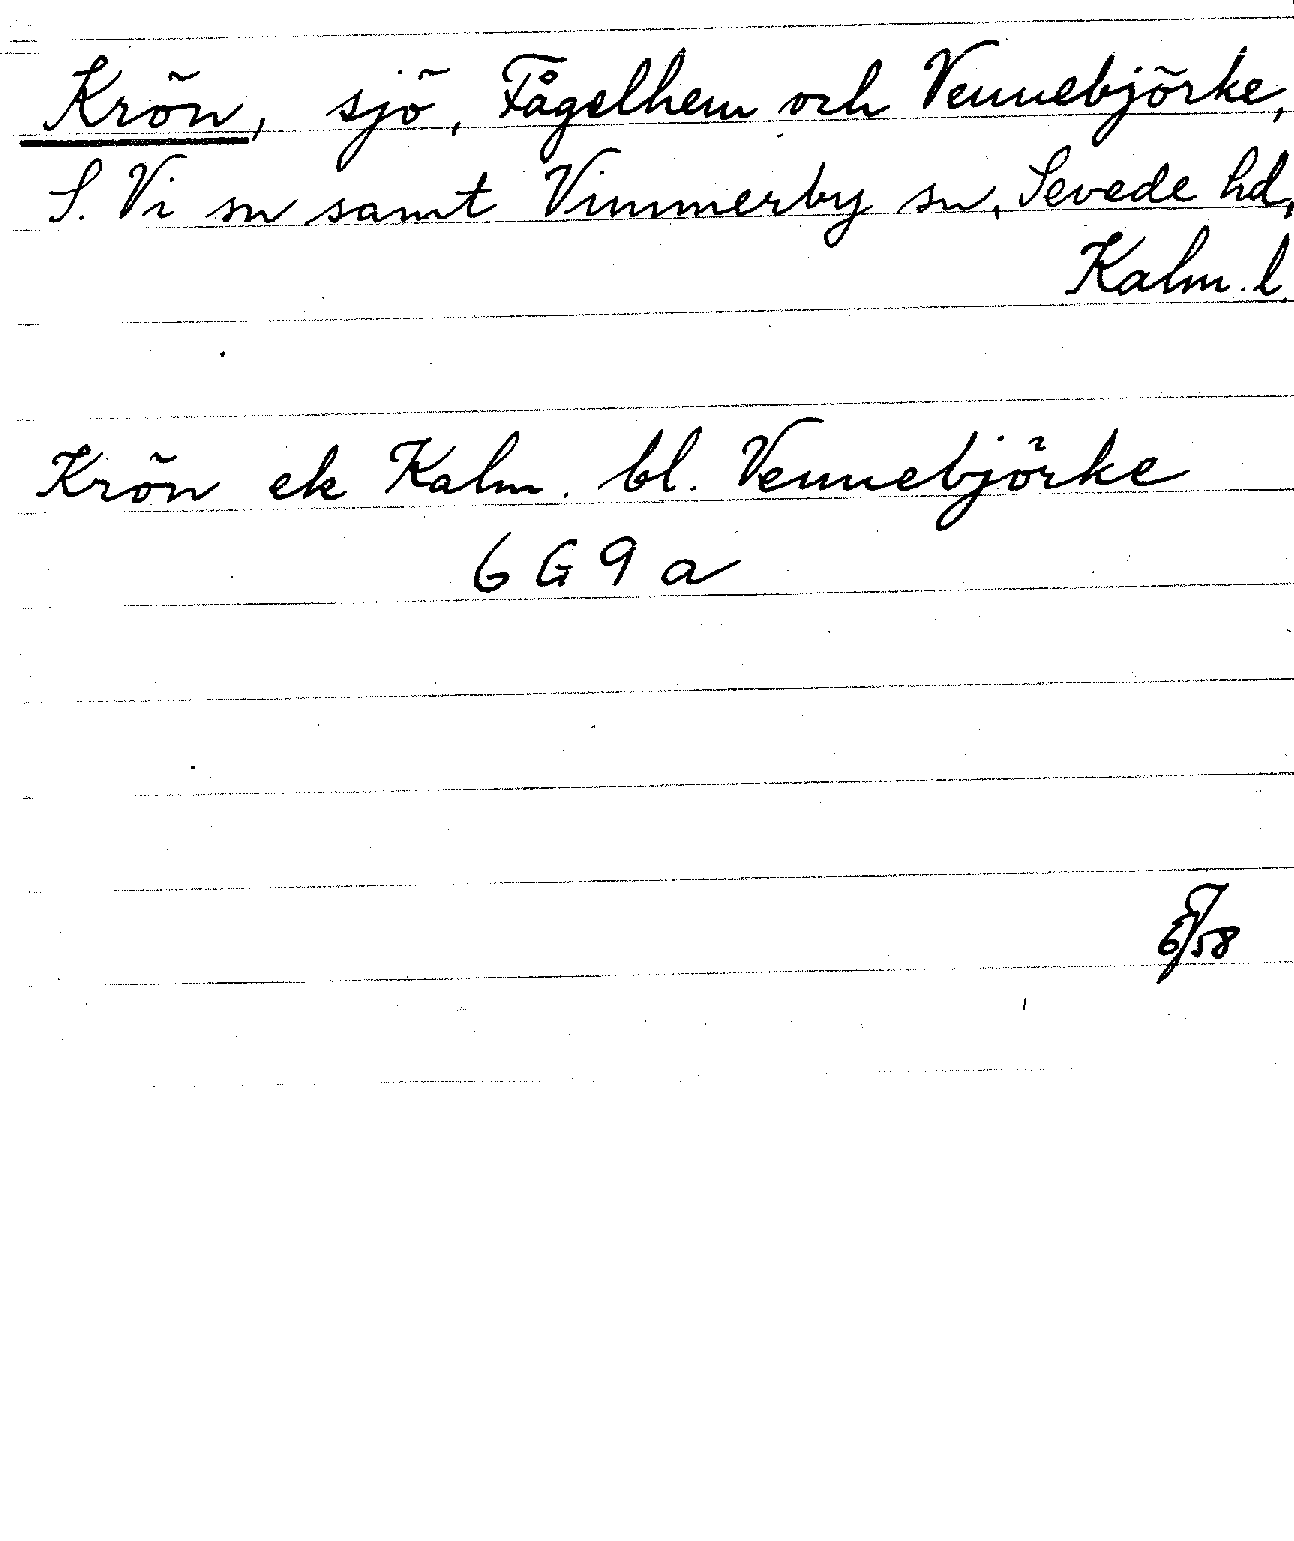 Krön, sjö, Fågelhem och Vennebjörke,
S. Vi sn samt Vimmerby sn, Sevede hd,
Kalm. l.
Krön ek Kalm. bl. Vennebjörke
6 G 9 a